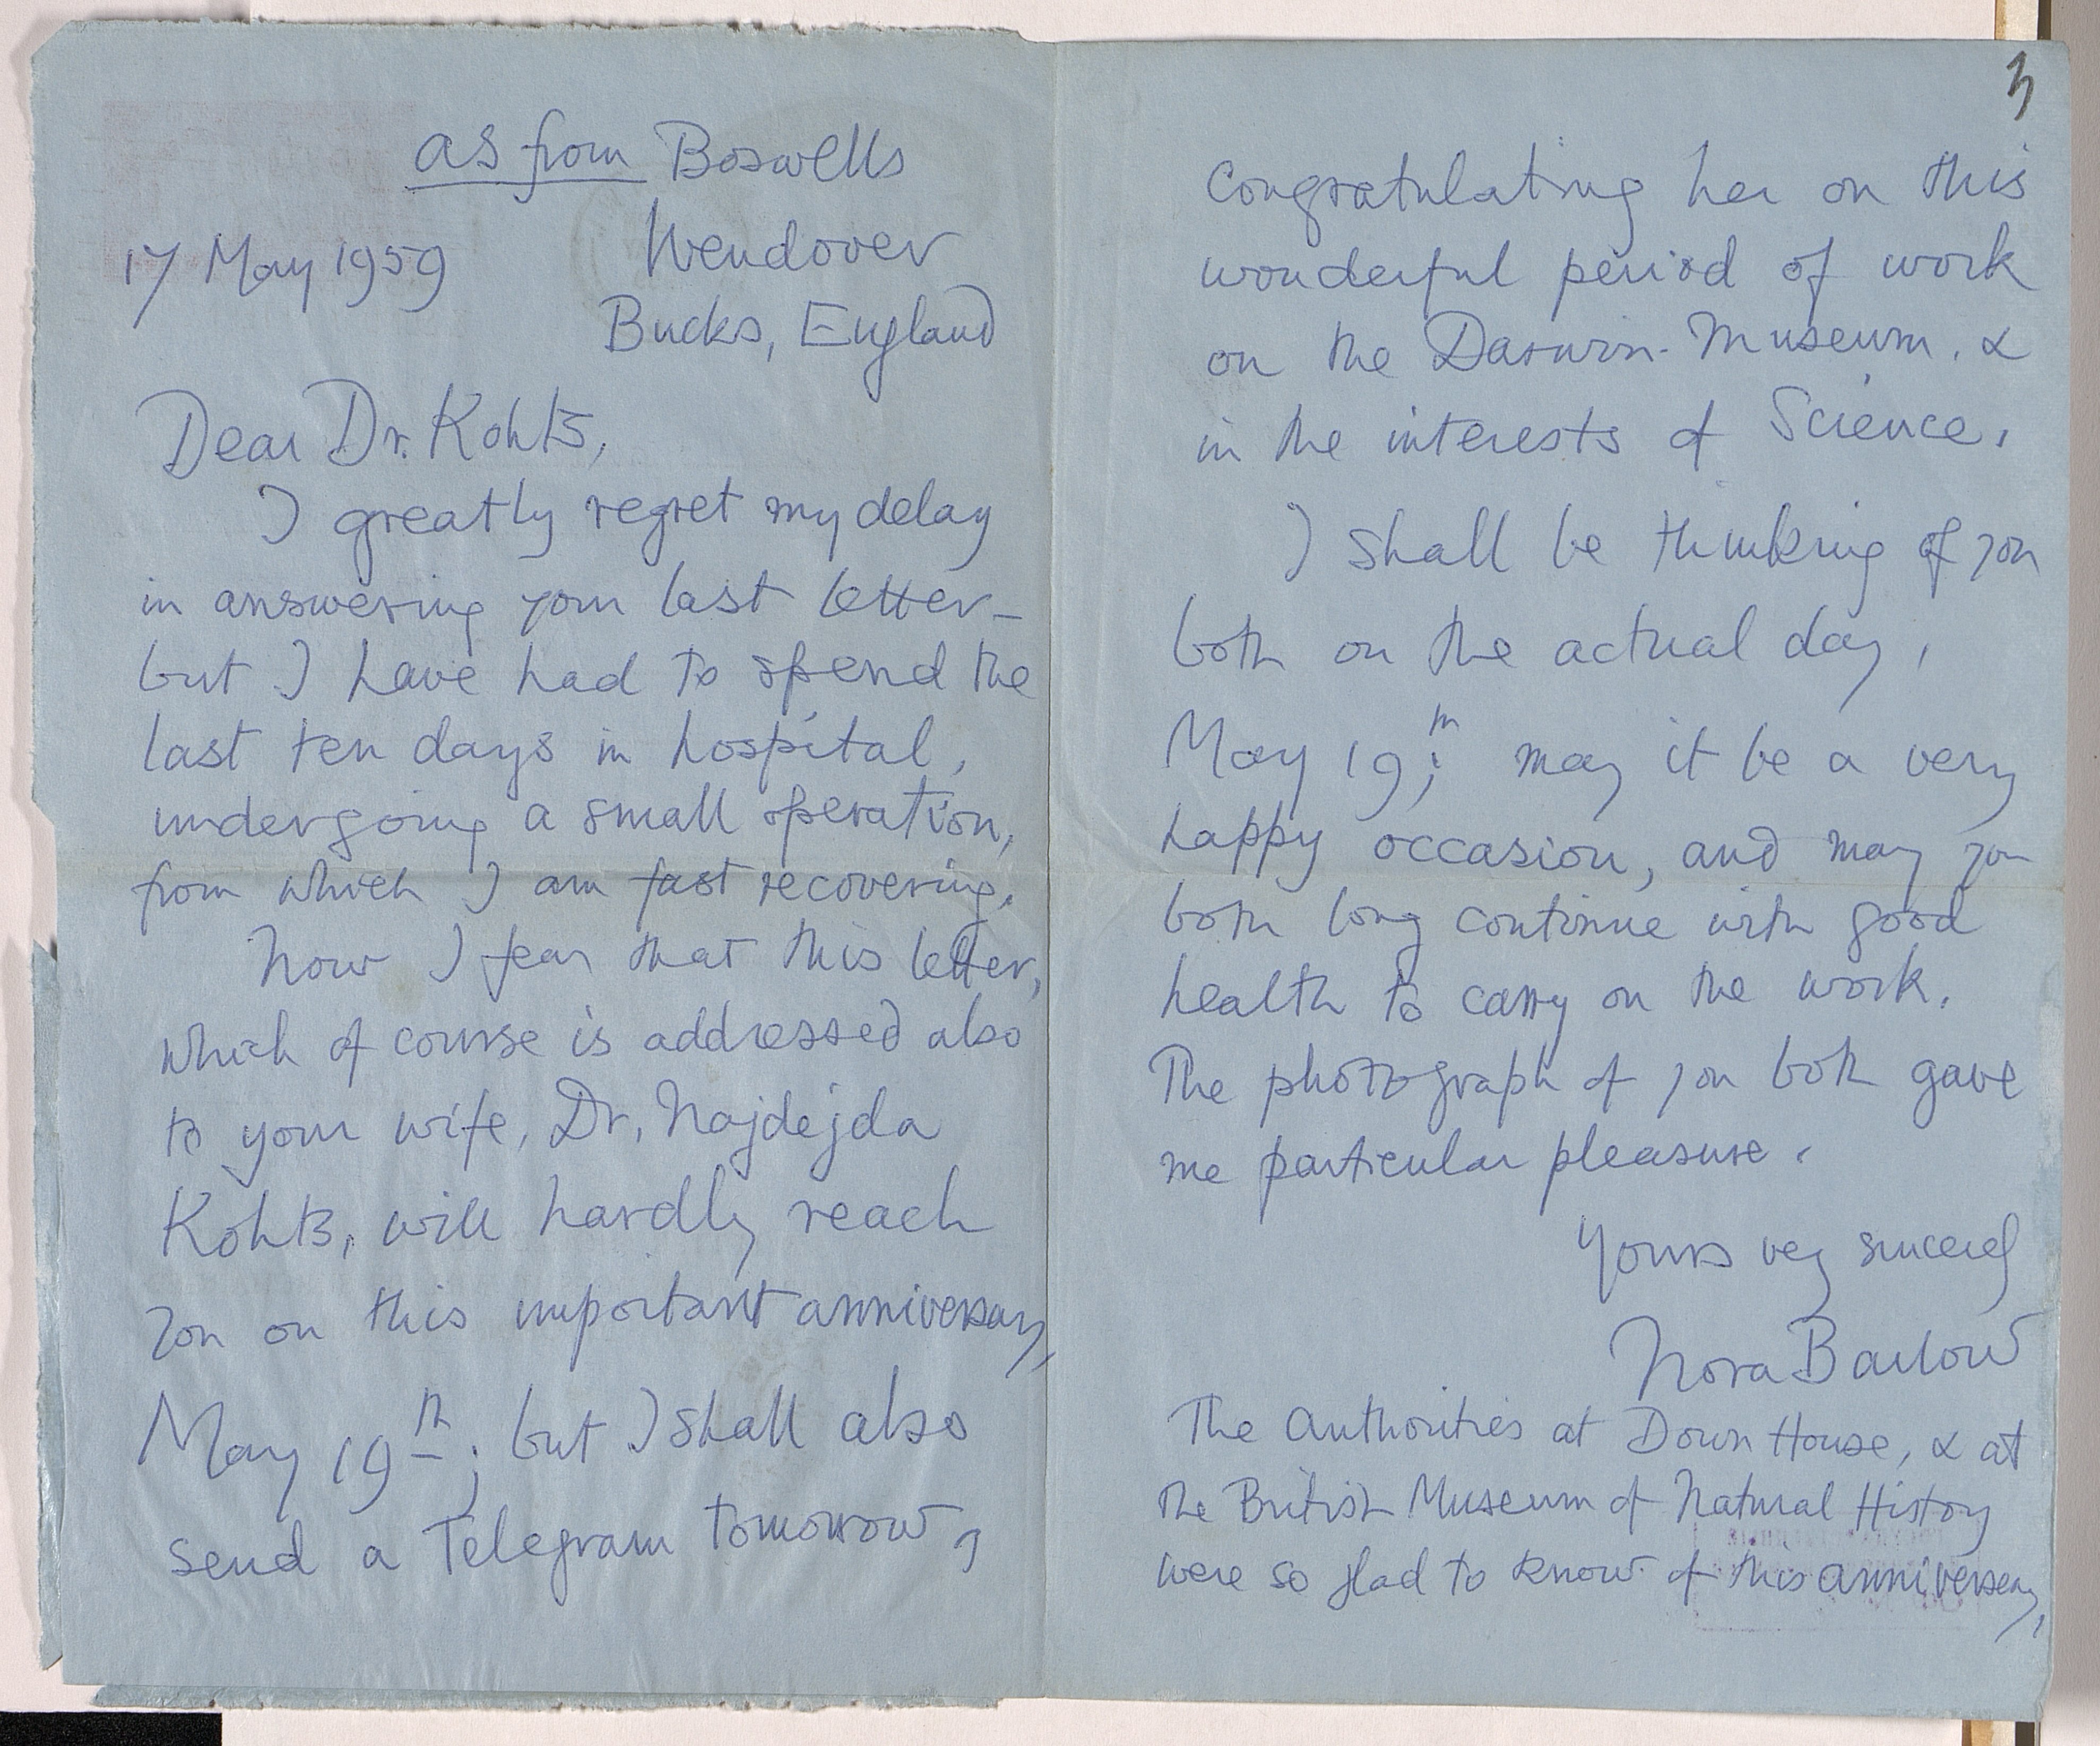 as from Boswells
17 May 1959 Wendover
Bucks, England
Dear Dr. Kohts,
I greatly regret my delay
in answering your last letter –
but I have had to spend the
last ten days in hospital,
undergoing a small operation,
from which I am fast recovering.
Now I fear that this letter,
which of course is addressed also
to your wife, Dr. Najdejda
Kohts, will hardly reach
you on this important anniversary,
May 19th; but I shall also
send a Telegram tomorrow,
3
congratulating her on this
wonderful period of work
on the Darwin-Museum, &
in the interests of Science.
I shall be thinking of you
both on the actual day,
May 19th; may it be a very
happy occasion, and may you
both long continue with good
health to carry on the work.
The photograph of you both gave
me particular pleasure.
Yours very sincerely
Nora Barlow
The Authorities at Down House, & at
the British Museum of Natural History
were so glad to know of this anniversary,